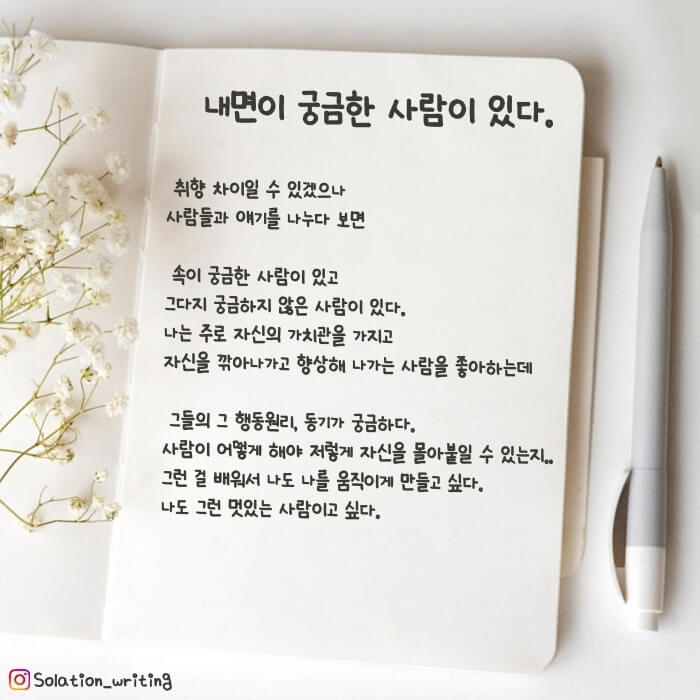 내면이 궁금한 사람이 있다.
취향 차이일 수 있겠으나
사람들과 얘기를 나누다 보면
속이 궁금한 사람이 있고
그다지 궁금하지 않은 사람이 있다.
나는 주로 자신의 가치관을 가지고
자신을 깎아나가고 향상해 나가는 사람을 좋아하는데
그들의 그 행동원리, 동기가 궁금하다.
사람이 어떻게 해야 저렇게 자신을 몰아붙일 수 있는지..
그런 걸 배워서 나도 나를 움직이게 만들고 싶다.
나도 그런 멋있는 사람이고 싶다.
Solation_writing